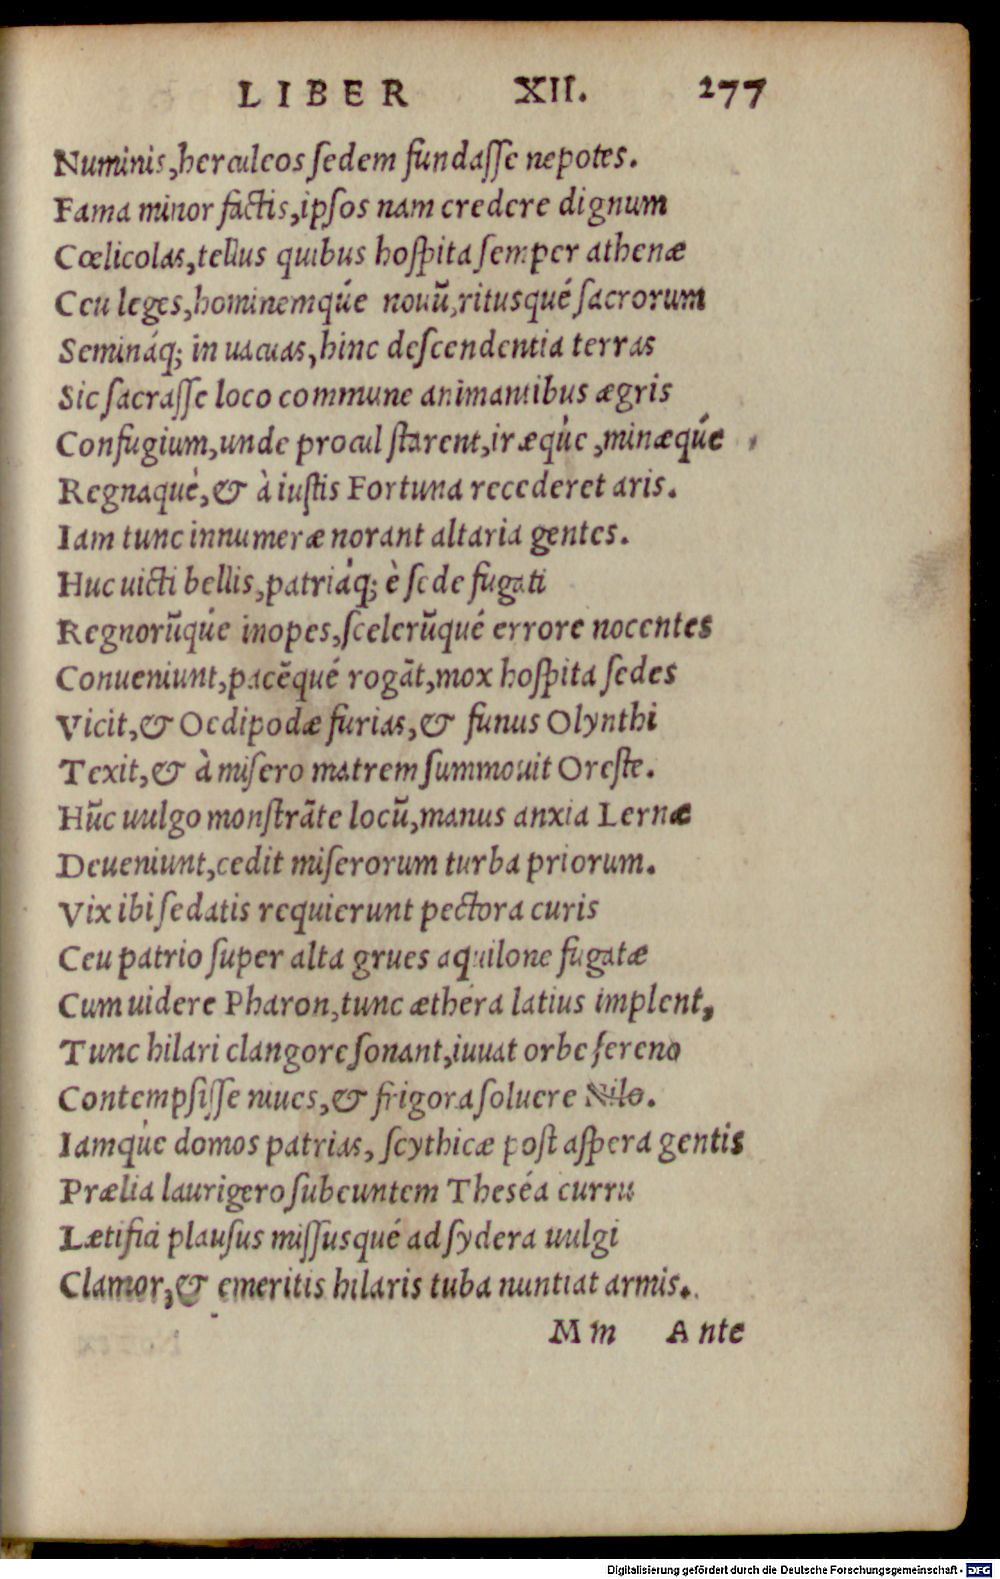 LIBER XII. 277
Numinis, herculeos ſedem fundaſſe nepotes.
Fama minor factis, ipſos nam credere dignum
Cœlicolas, tellus quibus hoſpita ſemper athenæ
Ceu leges, hominemqúe nouũ, ritusqué ſacrorum
Semináq; in uacuas, hinc deſcendentia terras
Sic ſacraſſe loco commune animantibus ægris
Confugium, unde procul ſtarent, iræqùe, minæqúe
Regnaquè, & à iuſtis Fortuna recederet aris.
Iam tunc innumeræ norant altaria gentes.
Huc uicti bellis, patriáq; è ſede fugati
Regnorũqúe inopes, ſcelerũqué errore nocentes
Conueniunt, pacẽqué rogãt, mox hoſpita ſedes
Vicit, & Oedipodæ furias, & funus Olynthi
Texit, & à miſero matrem ſummouit Oreſte.
Hũc uulgo monſtrãte locũ, manus anxia Lernæ
Deueniunt, cedit miſerorum turba priorum.
Vix ibi ſedatis requierunt pectora curis
Ceu patrio ſuper alta grues aquilone fugatæ
Cum uidere Pharon, tunc æthera latius implent,
Tunc hilari clangore ſonant, iuuat orbe ſereno
Contempſiſſe niues, & frigora ſoluere Nilo.
Iamqùe domos patrias, ſcythicæ poſt aſpera gentis
Prælia laurigero ſubeuntem Theséa curru
Lætifici plauſus miſſusqué ad ſydera uulgi
Clamor, & emeritis hilaris tuba nuntiat armis.
Mm Ante
Digitalisierung gefördert durch die Deutsche Forschungsgemeinschaft - DFG